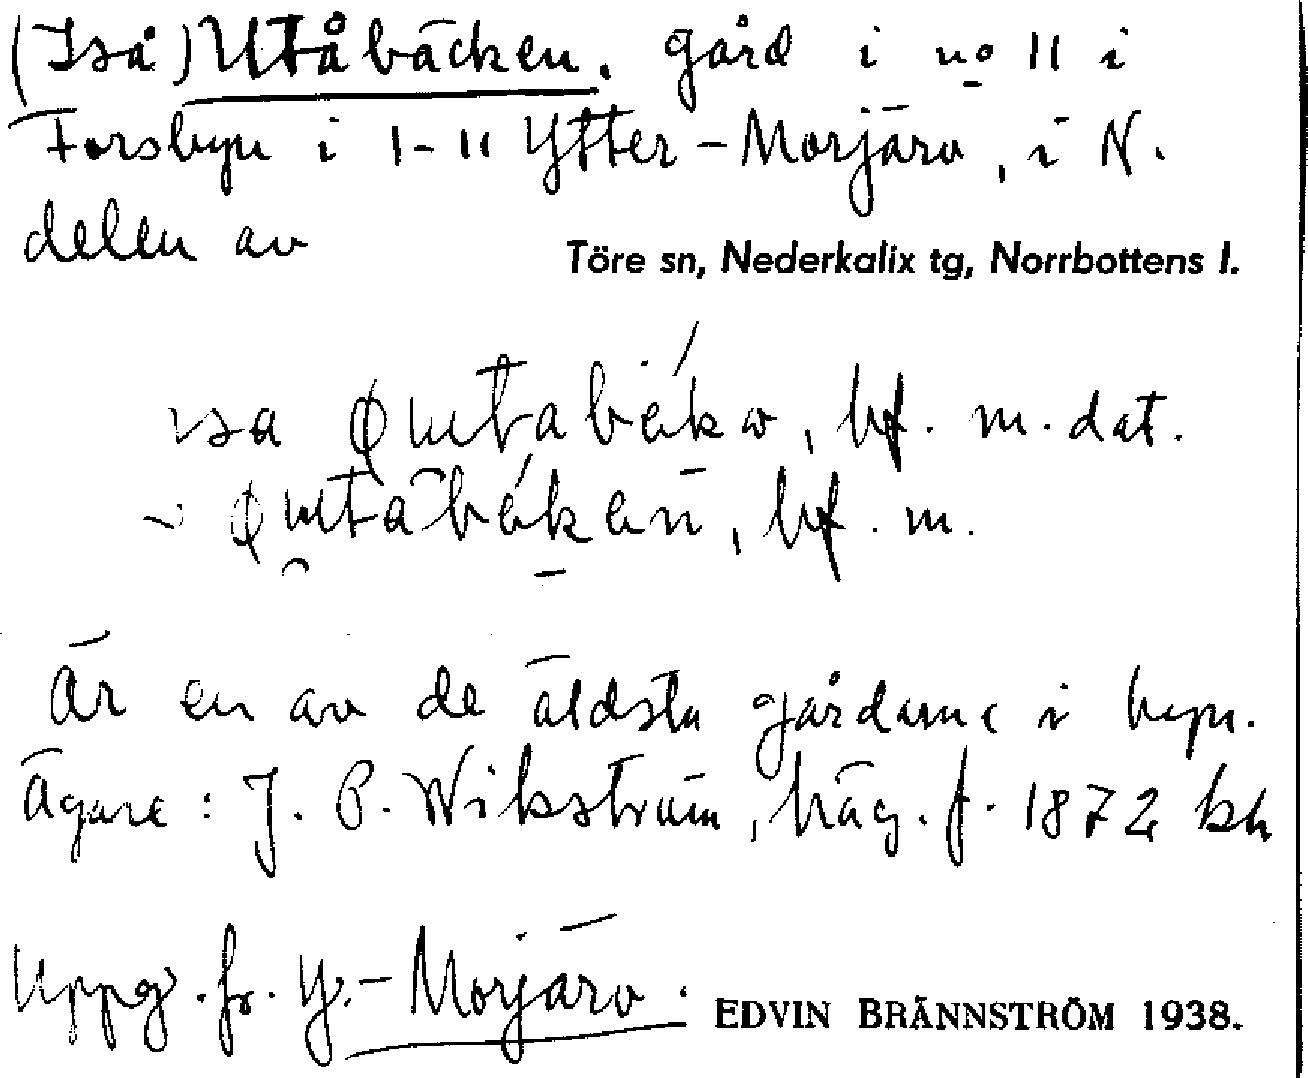 (Iså) Utåbäcken. gård i no 11 i
Forsbyn i 1-11 Ytter-Morjärv, i N.
delen av
Töre sn, Nederkalix tg, Norrbottens l.
bf. m. dat.
bf. m.
Är en av de äldsta gårdarne i byn.
Ägare: J. P. Wikström, häg. f. 1872
Uppg. fr. Y.-Morjärv. EDVIN BRÄNNSTRÖM 1938.